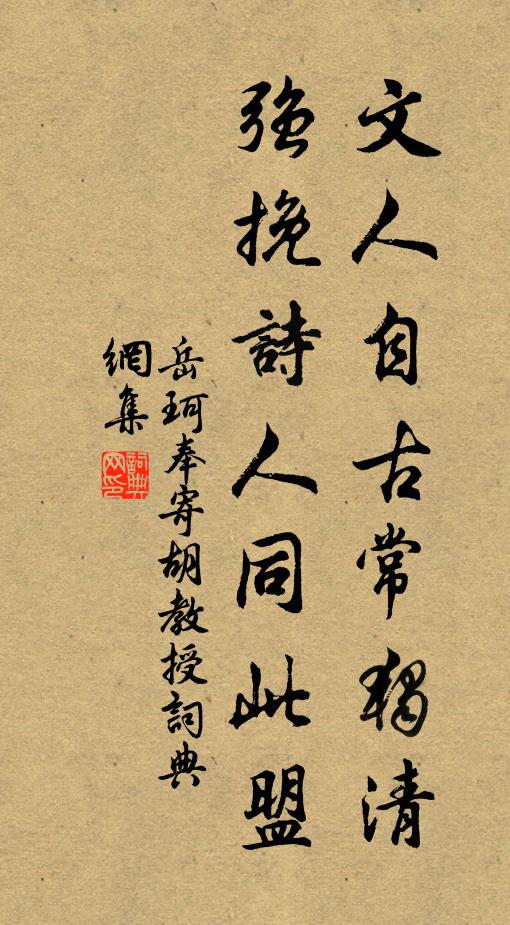 文人自古常獨清
強挽詩人同此盟
岳珂奉寄胡教授詞典
網集
詞典
网印